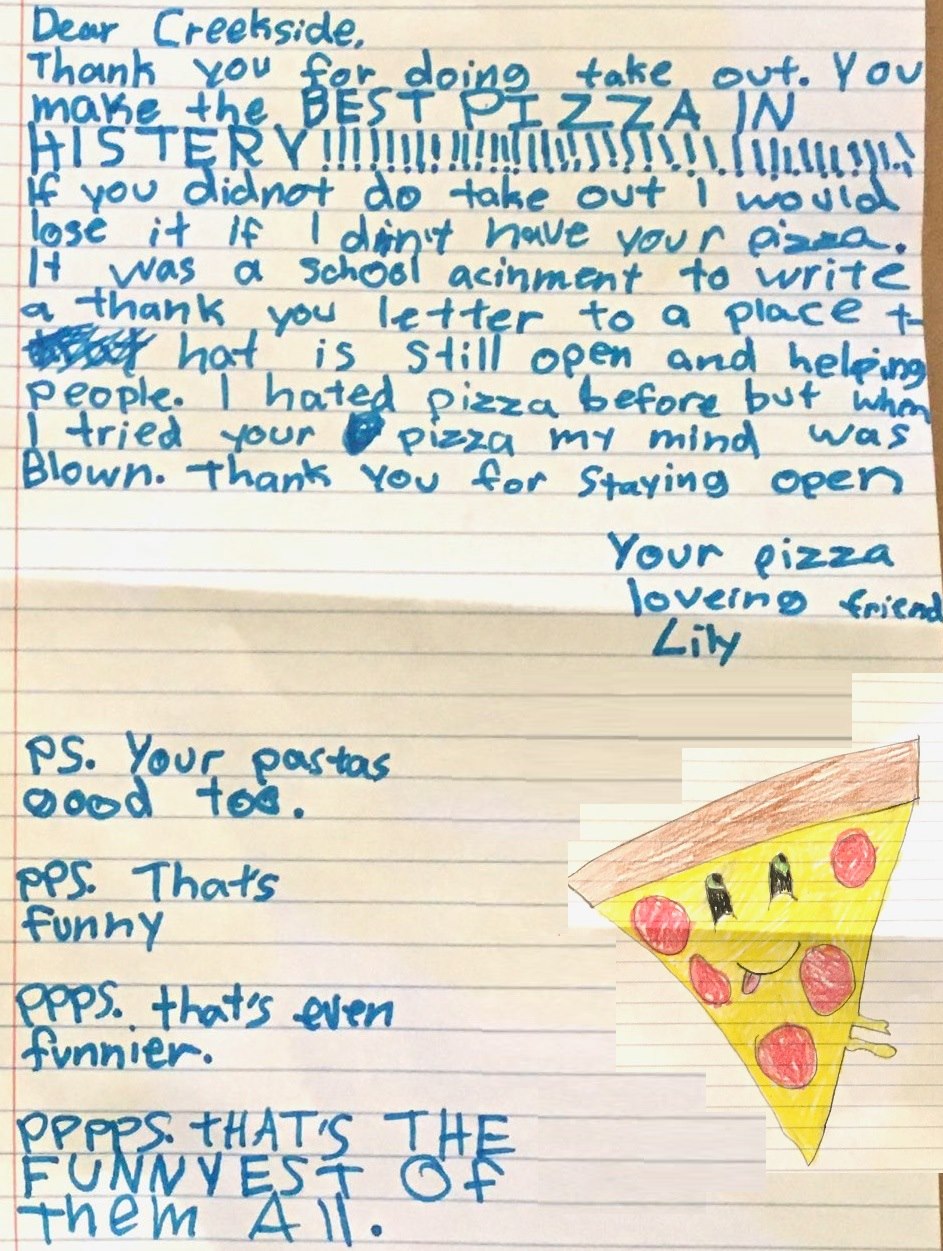 Dear Creekside,
Thank you for doing take out. You
make the BEST PIZZA IN
HISTERY!!!!!!!!!!!!!!!!!!!!!!!!!!!!!!!!!!!
If you didnot do take out I would
lose it if I din't have your pizza.
It was a school acinment to write
a thank you letter to a place t-
hat is still open and helping
people. I hated pizza before but when
I tried your pizza my mind was
Blown. Thank you for staying open
Your pizza
loveing friend
Lily
PS. Your pastas
good too.
PPS. That's
funny
PPPS. that's even
funnier.
PPPPS. tHAT'S THE
FUNNYEST Of
them All.